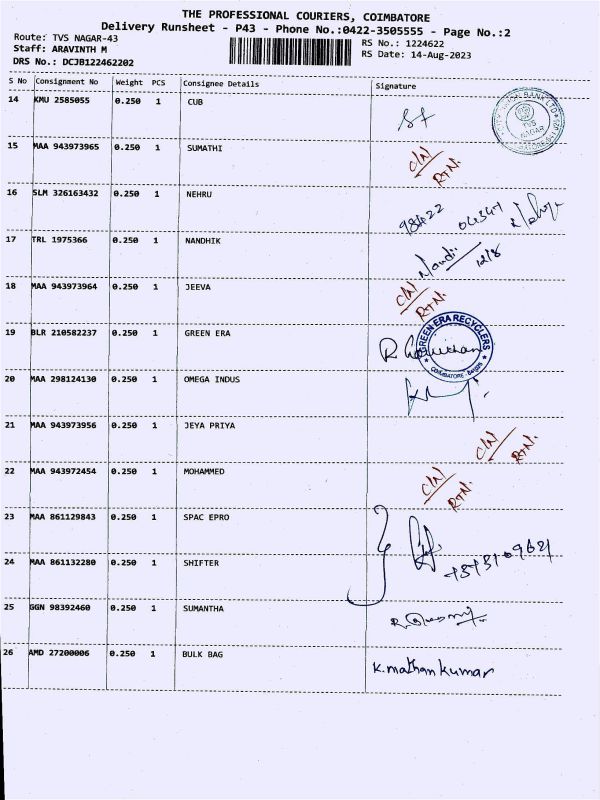 THE PROFESSIONAL COURIERS, COIMBATORE
Delivery Runsheet - P43 - Phone No.:0422-3505555 - Page No.:2
Route: TVS NAGAR-43 RS No.: 1224622
Staff: ARAVINTH M RS Date: 14-Aug-2023
DRS No.: DCJB122462202
S No Consignment No Weight PCS Consignee Details Signature
14 KMU 2585055 0.250 1 CUB
TVS NAGAR
15 MAA 943973965 0.250 1 SUMATHI C/N RTN.
16 SLM 326163432 0.250 1 NEHRU 98422 04347
17 TRL 1975366 0.250 1 NANDHIK Nandi 12/8
18 MAA 943973964 0.250 1 JEEVA C/N RTN.
19 BLR 210582237 0.250 1 GREEN ERA
GREEN ERA RECYCLERS
20 MAA 298124130 0.250 1 OMEGA INDUS
21 MAA 943973956 0.250 1 JEYA PRIYA C/N RTN.
22 MAA 943972454 0.250 1 MOHAMMED C/N RTN.
23 MAA 861129843 0.250 1 SPAC EPRO
24 MAA 861132280 0.250 1 SHIFTER
25 GGN 98392460 0.250 1 SUMANTHA
26 AMD 27200006 0.250 1 BULK BAG K.mathan kumar